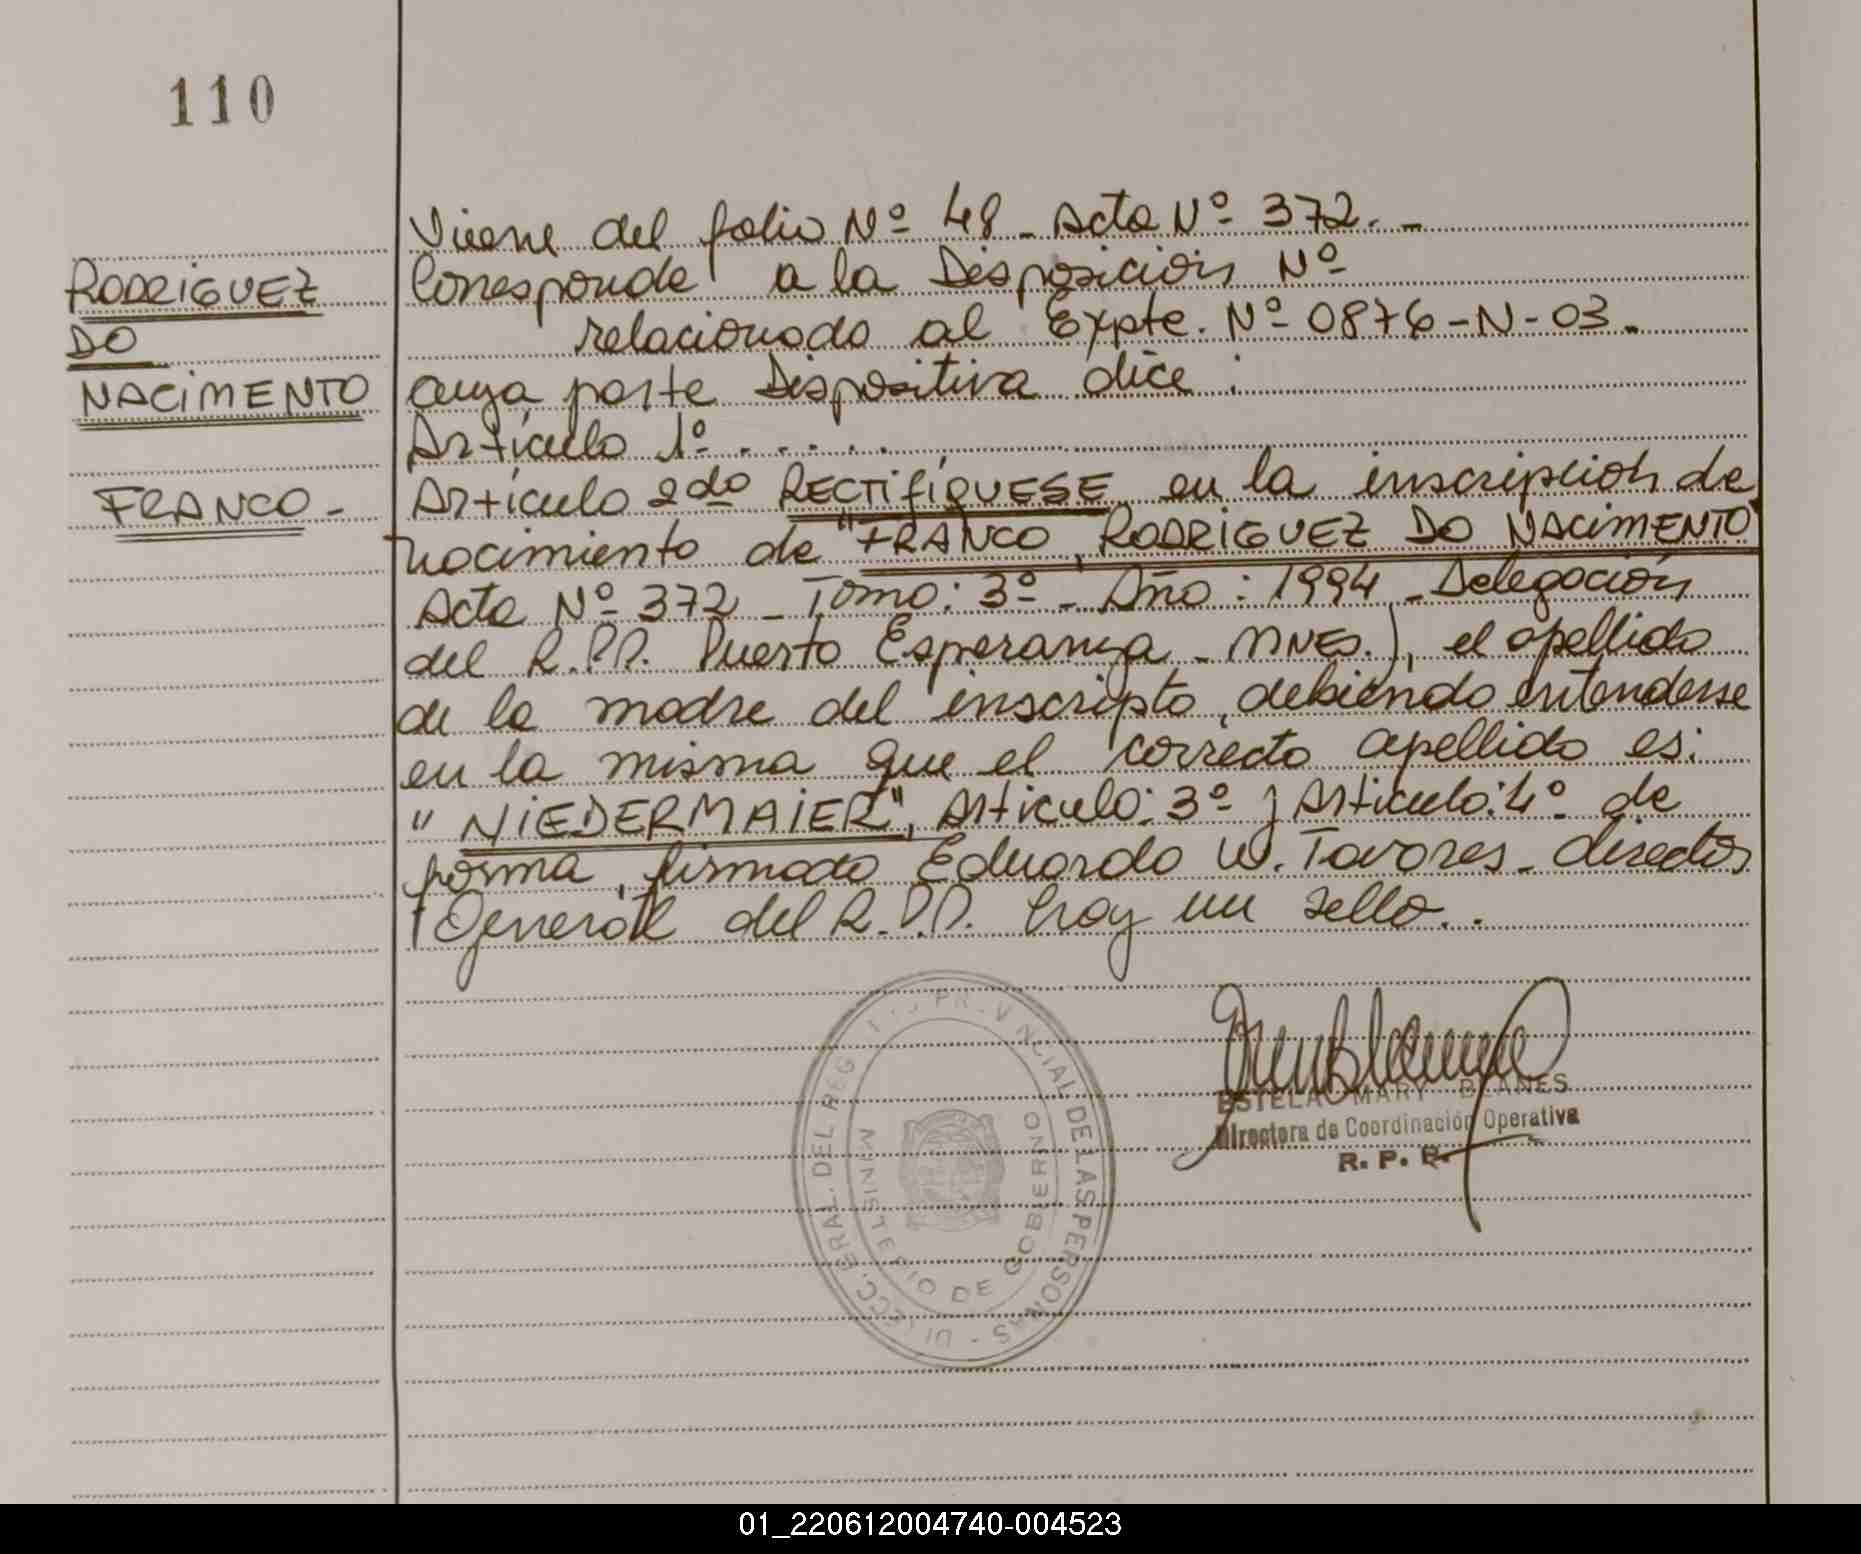 110
RODRIGUEZ
DO
NACIMENTO
FRANCO -
Viene del folio Nº 48 - Acta Nº 372. -
Corresponde a la Disposición Nº
relacionado al Expte. Nº 0876-N-03.
cuya parte Dispositiva dice :
Artículo 1º . . . . . .
Artículo 2do RECTIFÍQUESE en la inscripción de
nacimiento de "FRANCO, RODRIGUEZ DO NACIMENTO"
Acta Nº 372 - Tomo: 3º - Año : 1994 - Delegación
del R.P.P. Puerto Esperanza - MNES.), el apellido
de la madre del inscripto, debiendo entenderse
en la misma que el correcto apellido es:
" NIEDERMAIER", Artículo: 3º y Artículo: 4º de
forma, firmado Eduardo W. Tavares - director
General del R.P.P. hay un sello. .
ESTELA MARY BLANES
Directora de Coordinación Operativa
R. P. P.
MINISTERIO DE GOBIERNO
01_220612004740-004523